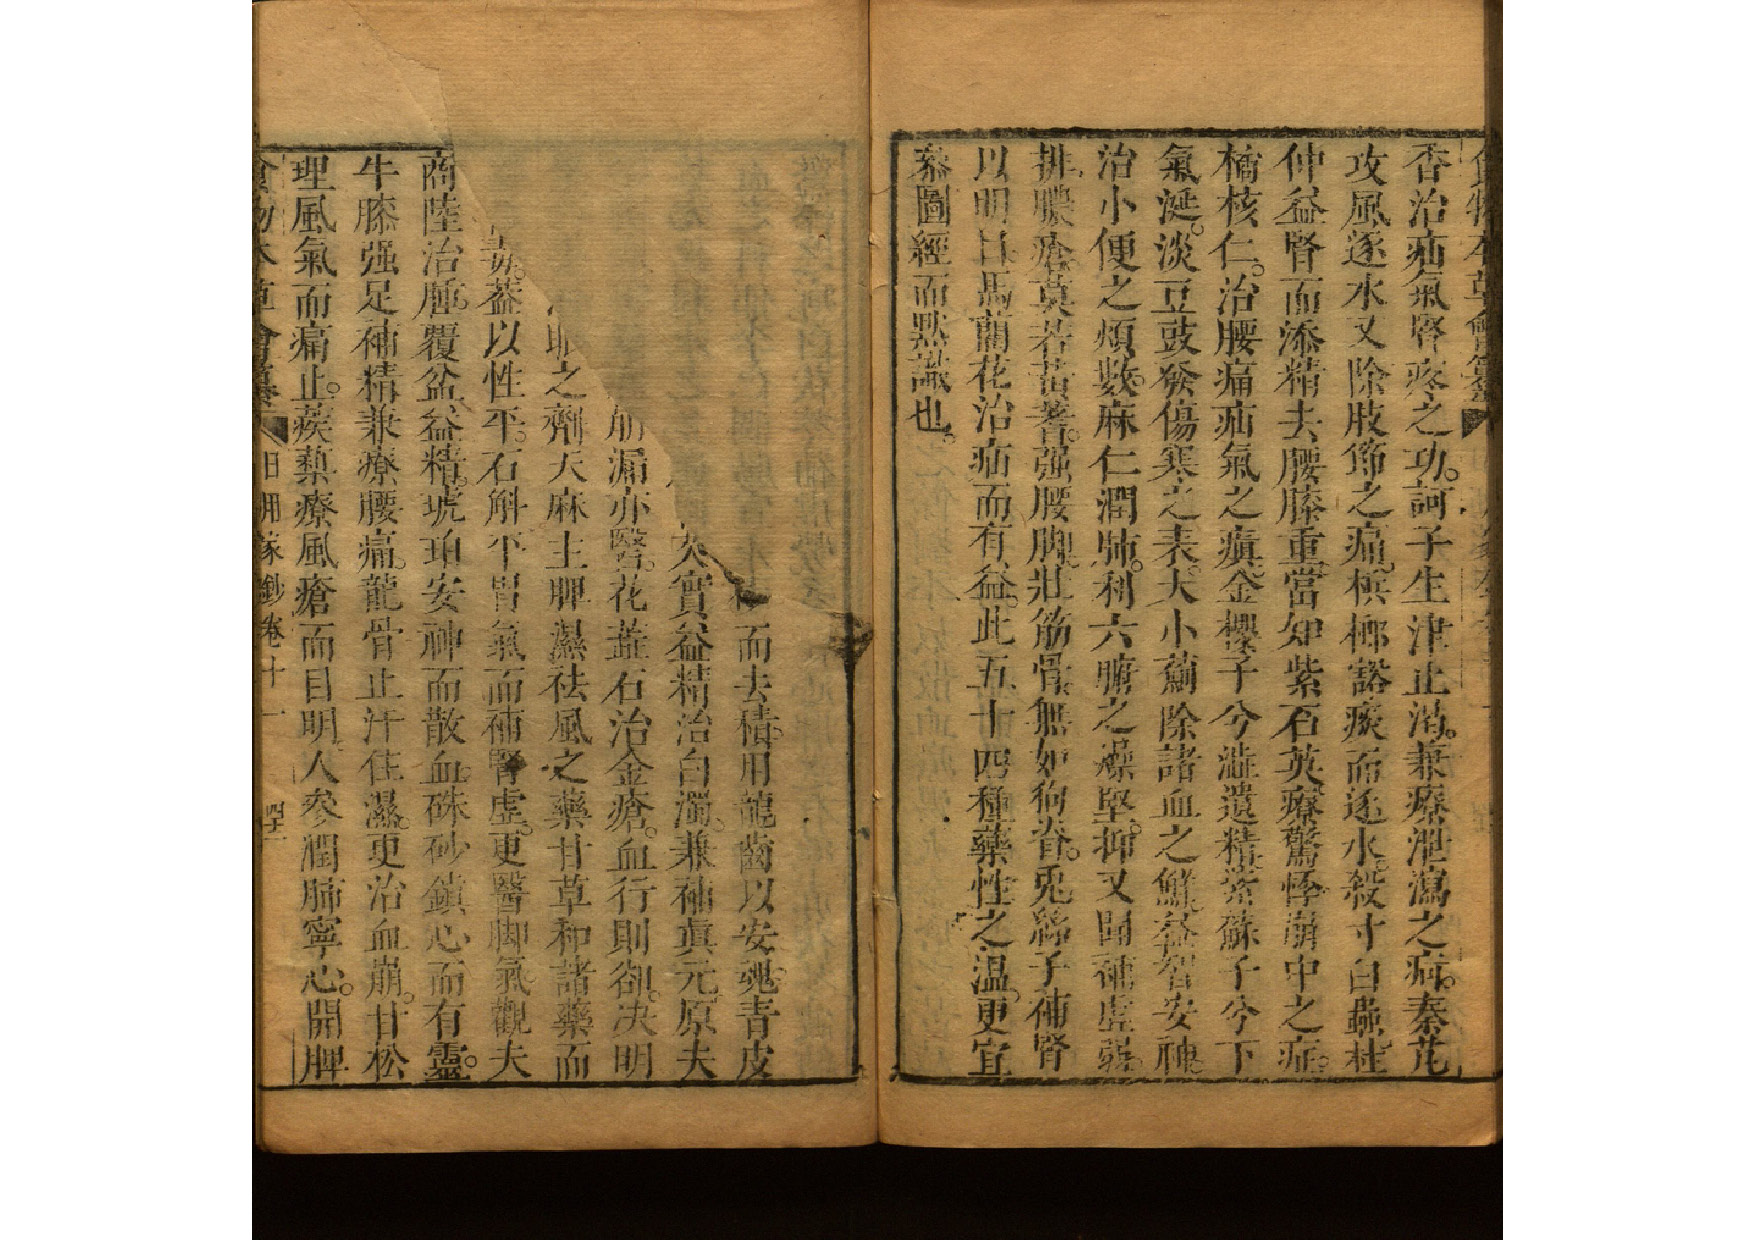 食物本草會纂
否治疝氣臂疼之功。訶子生津止渴。兼療泄瀉之疴。秦艽
攻風逐水又除肢節之痛。檳榔豁痰而逐水。殺寸白蟲。杜
仲益腎而添精去腰膝重。當知紫石英療驚悸崩中之症。
橘核仁。治腰痛疝氣之瘨。金櫻子兮澁遺精。紫蘇子兮下
氣涎。淡豆豉發傷寒之表。大小薊除諸血之鮮。益智安神。
治小便之頻數。麻仁潤肺。利六腑之燥堅。抑又聞補虛弱。
排膿瘡。莫若黃蓍。强腰脚。壯筋骨。無如狗脊。兎絲子補腎
以明目。馬藺花治疝而有益。此五十四種藥性之温。更宜
叅圖經而默識也。
而去積。用龍齒以安魂。青皮
實益精治白濁。兼補眞元。原夫
崩漏亦醫。花蕋石治金瘡。血行則卻。决明
之劑天麻主脾濕祛風之藥甘草和諸藥而
蓋以性平。石斛平胃氣而補腎虛。更醫脚氣觀夫
商陸治腫。覆盆益精。琥珀安神而散血。硃砂鎮心而有靈。
牛膝强足補精兼療腰痛。龍骨止汗住濕。更治血崩。甘松
理風氣而痛止。蒺藜療風瘡而目明人參潤肺寧心。開脾
食物本草會纂 日用家鈔卷十一